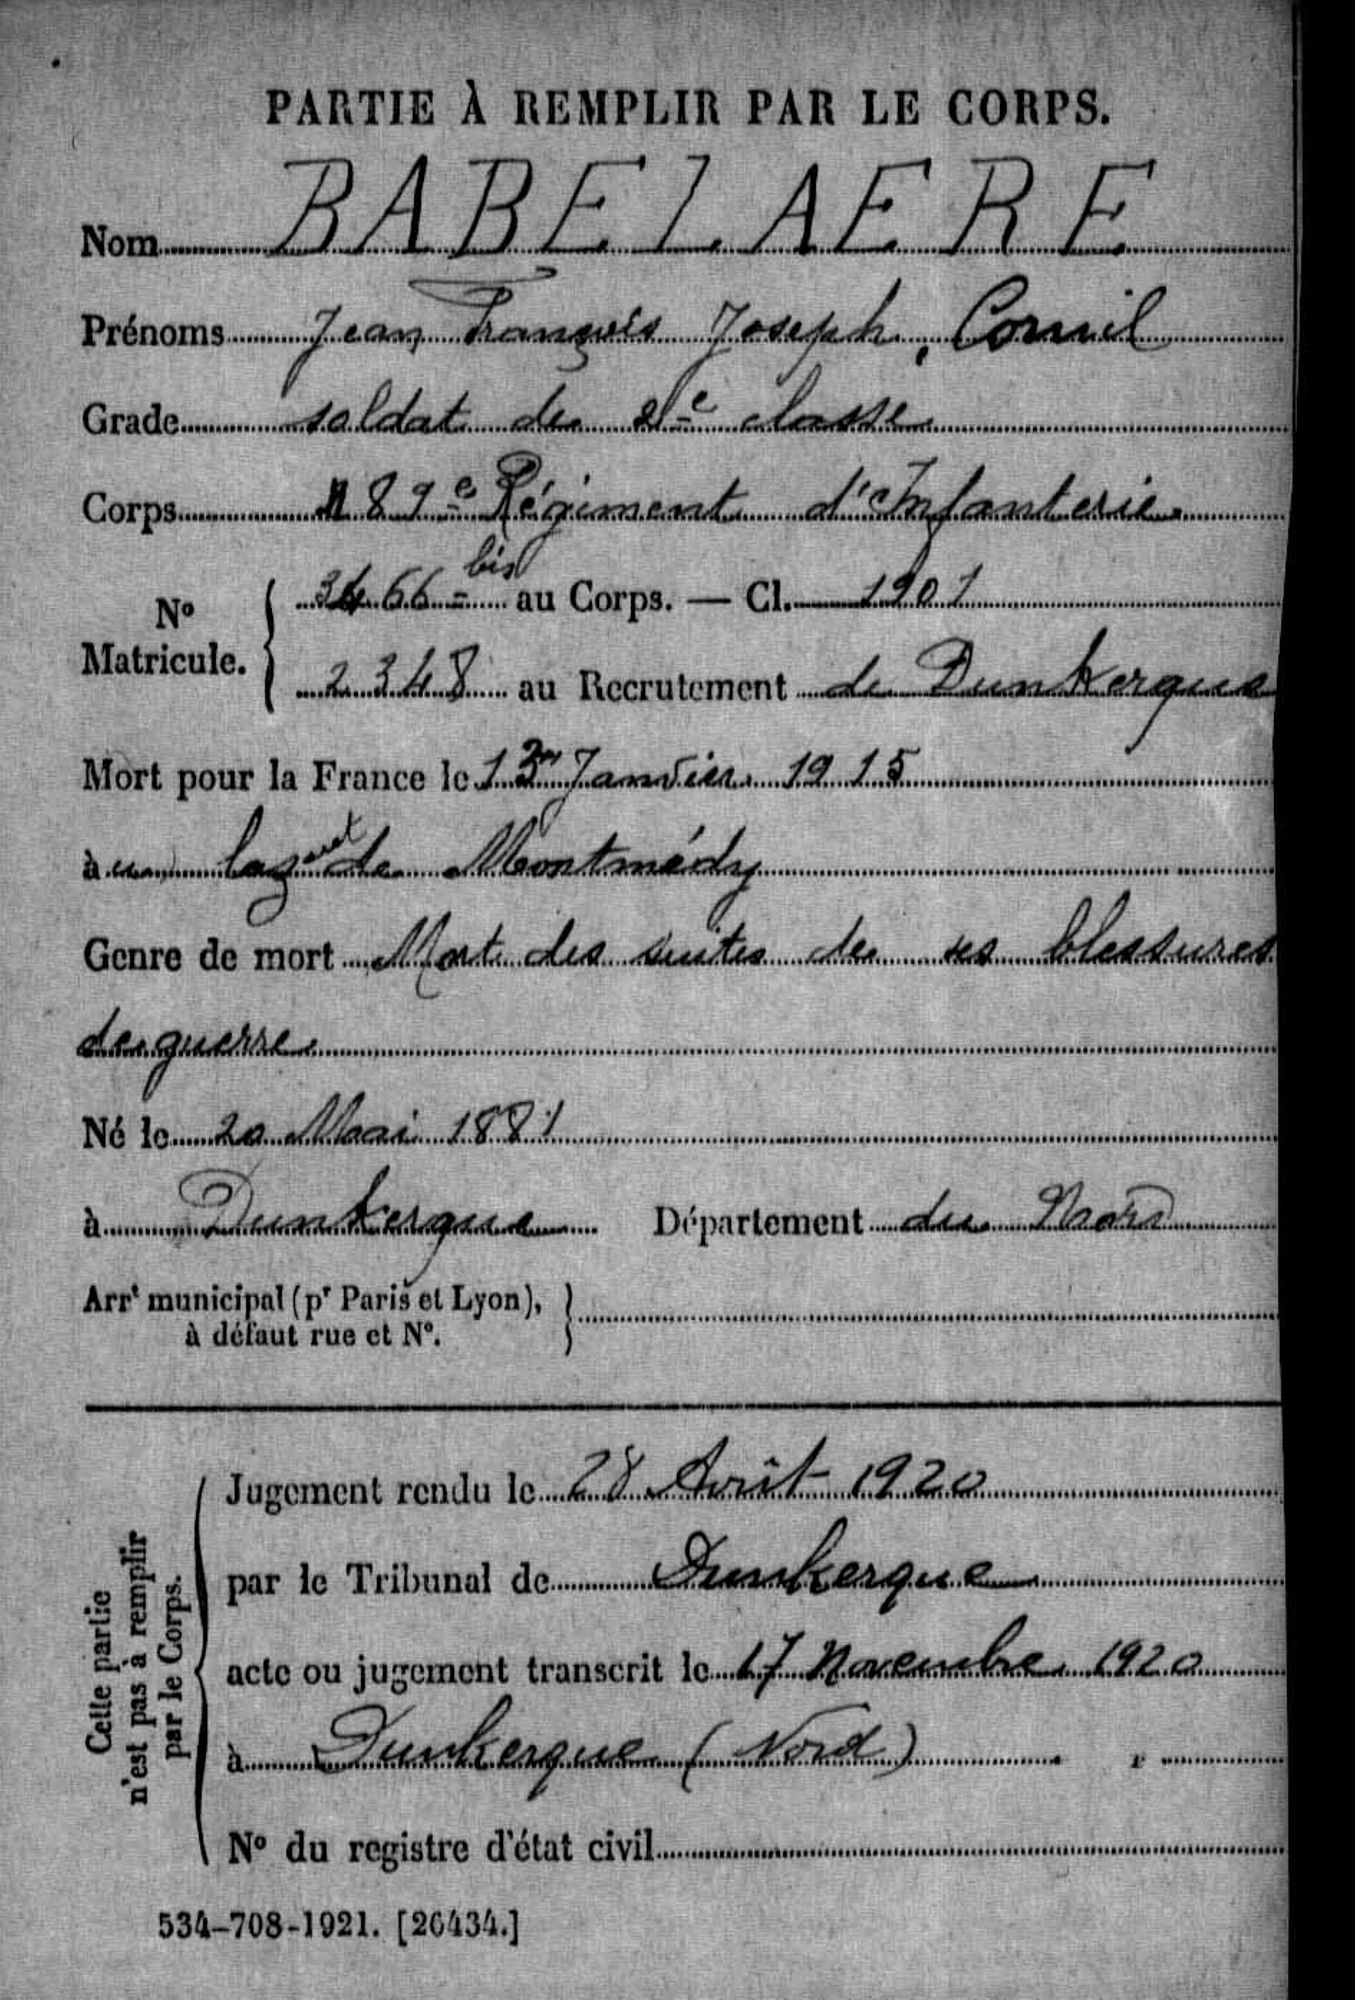 PARTIE À REMPLIR PAR LE CORPS.
Nom BABELAERE
Prénoms Jean François Joseph, Cornil
Grade soldat de 2e classe
Corps 89e Régiment d'Infanterie
3466 bis au Corps. — Cl. 1901
No Matricule.
2348 au Recrutement de Dunkerque
Mort pour la France le Janvier 1915
à un lazaret de Montmédy
Genre de mort Mort des suites de ses blessures
de guerre
Né le 20 Mai 1881
à Dunkerque Département du Nord
Arrt municipal (pr Paris et Lyon),
à défaut rue et No.
Jugement rendu le 28 Août 1920
par le Tribunal de Dunkerque
acte ou jugement transcrit le 17 Novembre 1920
à Dunkerque (Nord)
No du registre d'état civil
Cette partie
n'est pas à remplir
par le Corps.
534-708-1921. [26434.]